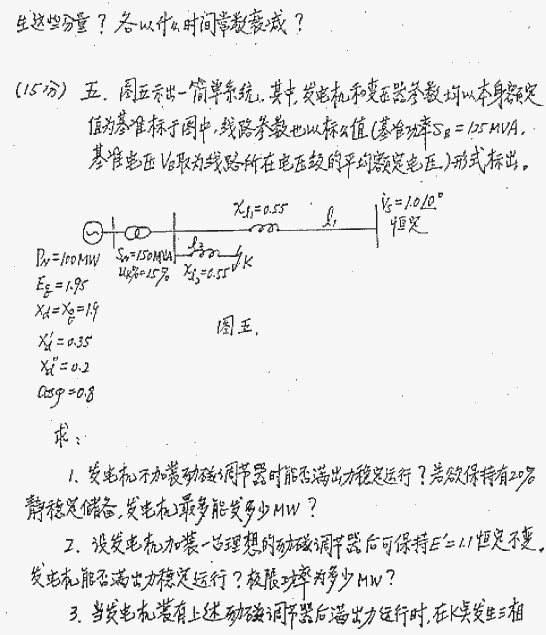 生这些分量？各以什么时间常数衰减？
(15分) 五、图五示出一简单系统，其中，发电机和变压器参数均以本身额定
值为基准标于图中，线路参数也以标么值(基准功率S_B=125MVA，
基准电压V_B取为线路所在电压级的平均额定电压。)形式标出。
X_{l1}=0.55
l_1
V̇_S=1.0∠0°
恒定
P_N=100MW
S_N=150MVA
U_K%=15%
l_2
X_{l2}=0.55
K
E_q=1.95
X_d=X_q=1.9
X_d'=0.35
X_d''=0.2
cosφ=0.8
图五.
求：
1. 发电机不加装励磁调节器时能否满出力稳定运行？若欲保持有20%
静稳定储备，发电机最多能发多少MW？
2. 设发电机加装一台理想的励磁调节器后可保持E'=1.1恒定不变，
发电机能否满出力稳定运行？极限功率为多少MW？
3. 当发电机装有上述励磁调节器后满出力运行时，在K点发生三相